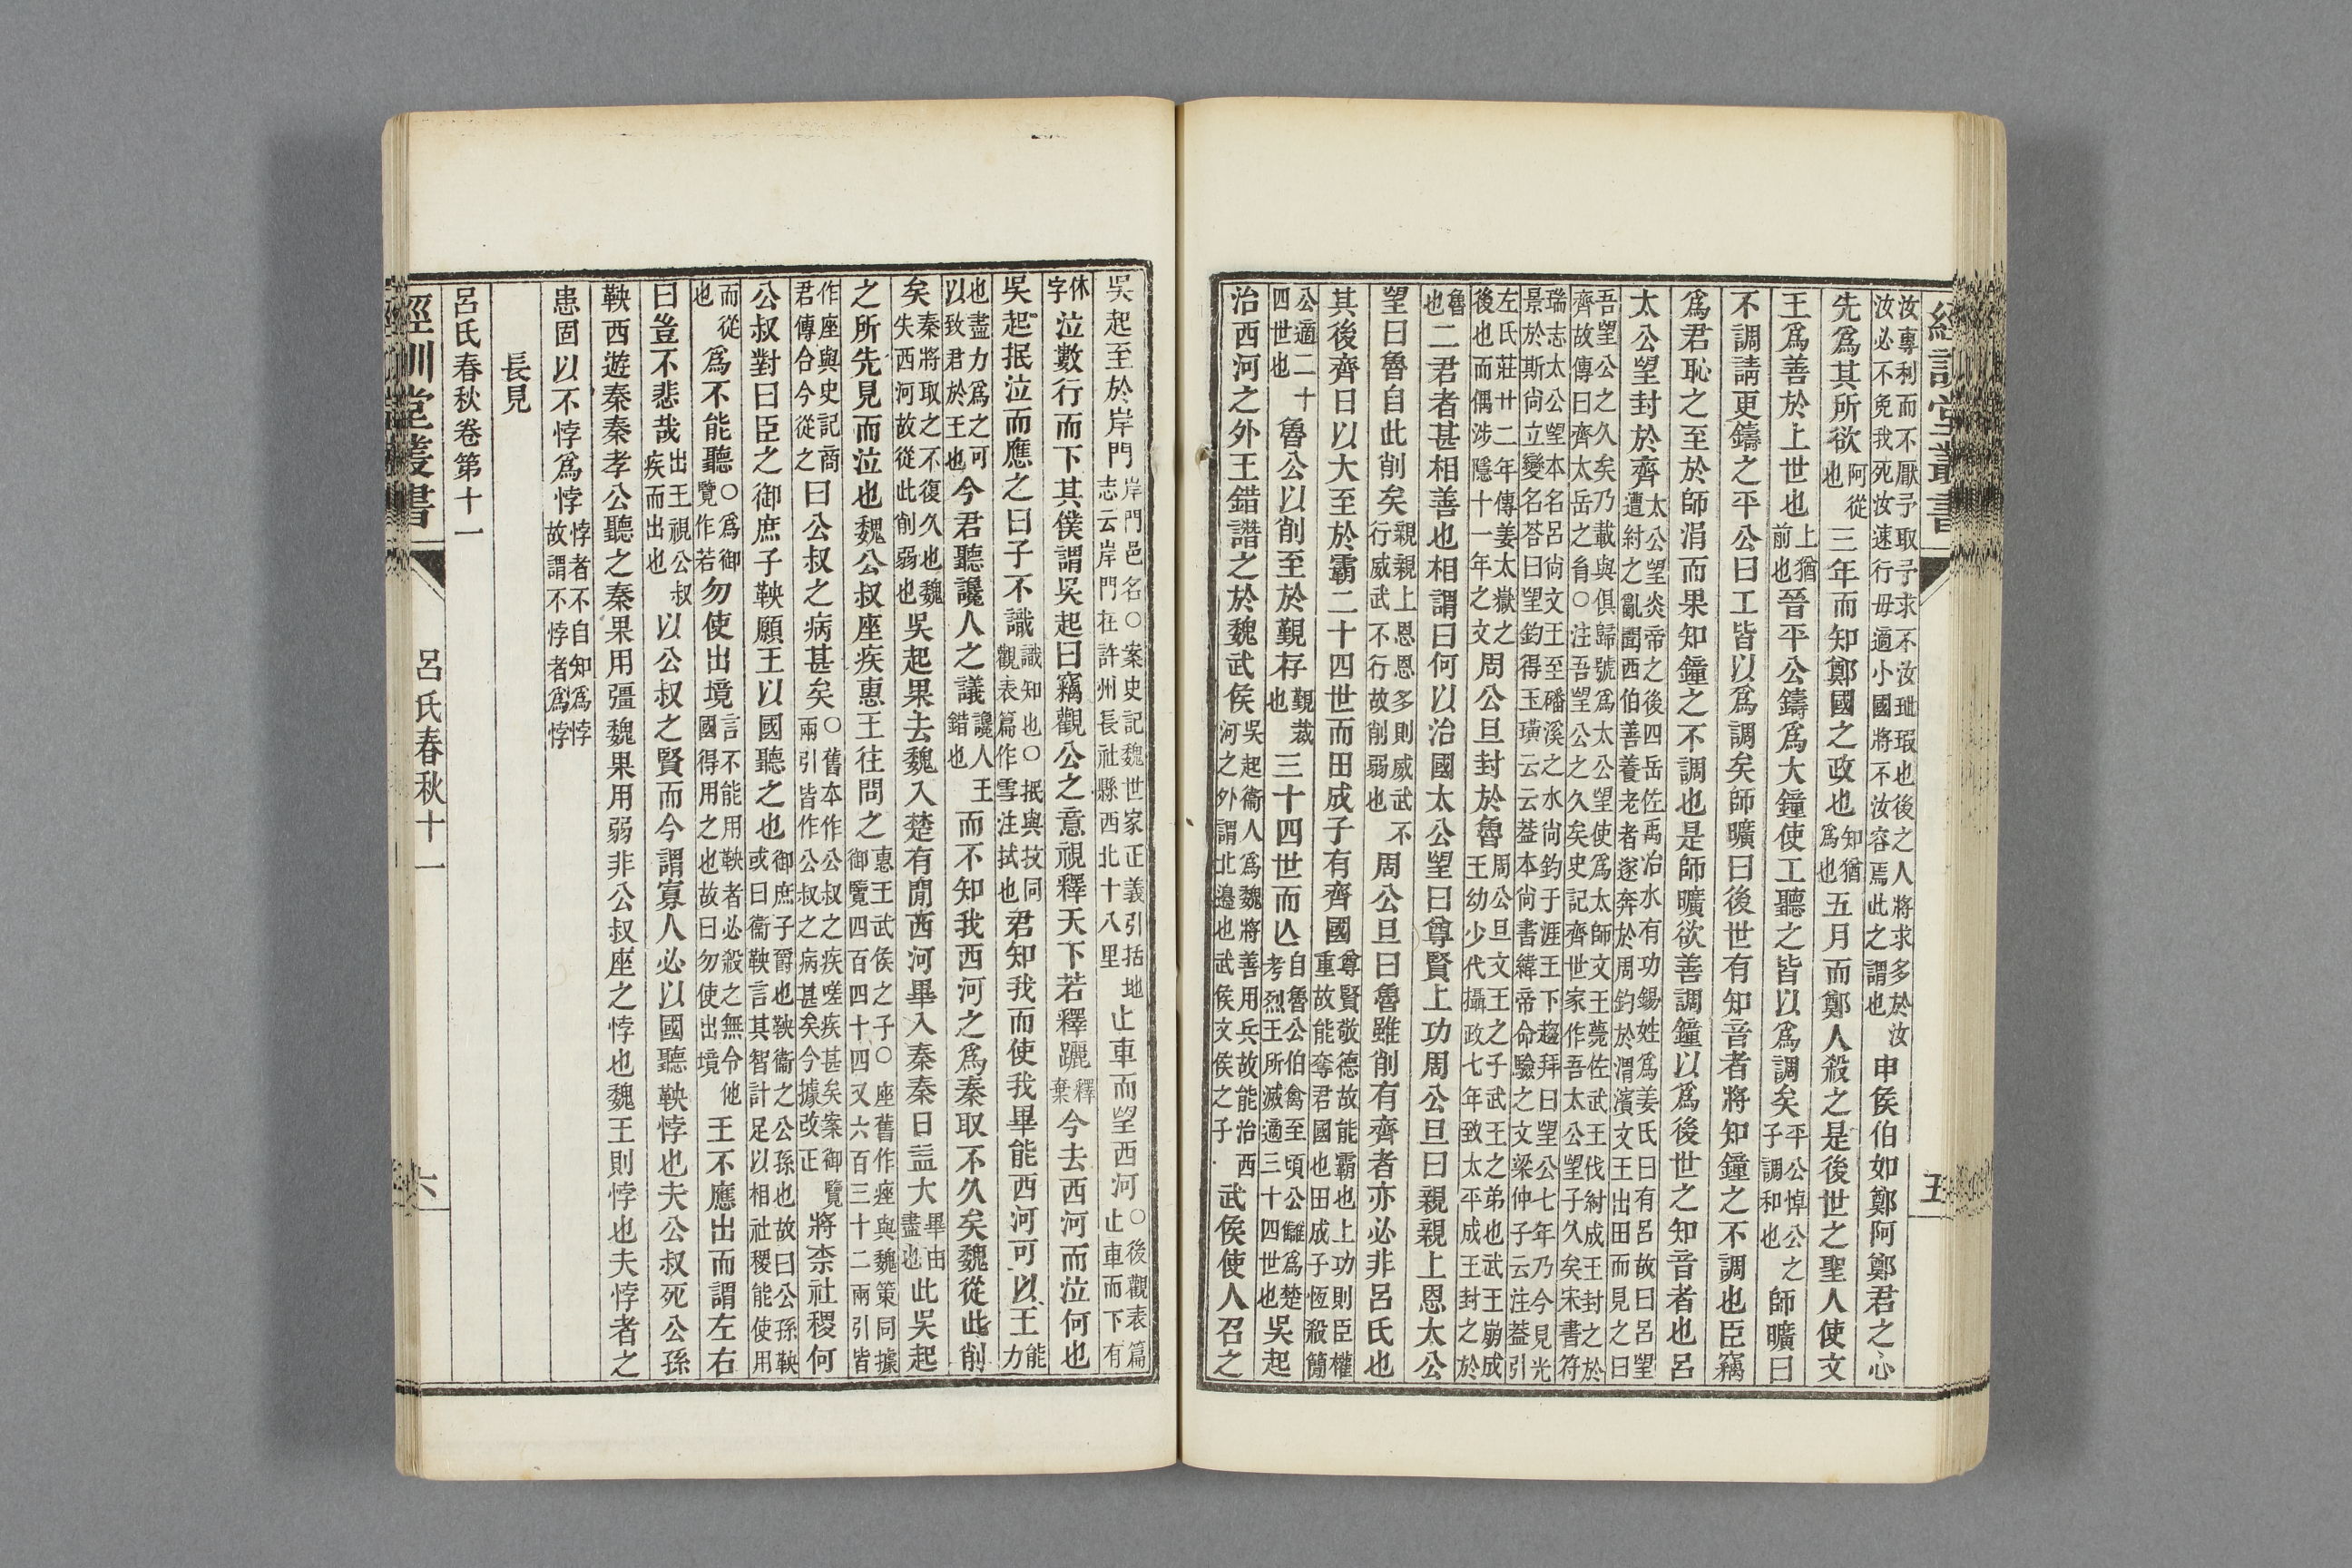 經訓堂叢書 五
汝專利而不厭予取予求不汝玼瑕也後之人將求多於汝
汝必不免我死汝速行毋適小國將不汝容焉此之謂也申侯伯如鄭阿鄭君之心
先爲其所欲阿從也三年而知鄭國之政也知猶爲也五月而鄭人殺之是後世之聖人使文
王爲善於上世也上猶前也晉平公鑄爲大鐘使工聽之皆以爲調矣平公悼公之子調和也師曠曰
不調請更鑄之平公曰工皆以爲調矣師曠曰後世有知音者將知鐘之不調也臣竊
爲君恥之至於師涓而果知鐘之不調也是師曠欲善調鐘以爲後世之知音者也呂
太公望封於齊太公望炎帝之後四岳佐禹治水有功錫姓爲姜氏曰有呂故曰呂望
遭紂之亂聞西伯善養老者遂奔於周釣於渭濱文王出田而見之曰
吾望公之久矣乃載與俱歸號爲太公望使爲太師文王薨佐武王伐紂成王封之於
齊故傳曰齊太岳之胄○注吾望公之久矣史記齊世家作吾太公望子久矣宋書符
瑞志太公望本名呂尙文王至磻溪之水尙釣于涯王下趨拜曰望公七年乃今見光
景於斯尙立變名荅曰望釣得玉璜云云葢本尙書緯帝命驗之文梁仲子云注葢引
左氏莊廿二年傳姜太嶽之後也而偶涉隱十一年之文周公旦封於魯周公旦文王之子武王之弟也武王崩成
王幼少代攝政七年致太平成王封之於
魯也二君者甚相善也相謂曰何以治國太公望曰尊賢上功周公旦曰親親上恩太公
望曰魯自此削矣親親上恩恩多則威武不行威武不行故削弱也周公旦曰魯雖削有齊者亦必非呂氏也
其後齊日以大至於霸二十四世而田成子有齊國尊賢敬德故能霸也上功則臣權
重故能奪君國也田成子恆殺簡
公適二十四世也魯公以削至於覲存覲裁也三十四世而亾自魯公伯禽至頃公讎爲楚
考烈王所滅適三十四世也吳起
治西河之外王錯譖之於魏武侯吳起衞人爲魏將善用兵故能治西
河之外謂北邉也武侯文侯之子武侯使人召之
吳起至於岸門岸門邑名○案史記魏世家正義引括地
志云岸門在許州長社縣西北十八里止車而望西河○後觀表篇
止車而下有
休字泣數行而下其僕謂吳起曰竊觀公之意視釋天下若釋躧釋棄今去西河而泣何也
吳起抿泣而應之曰子不識識知也○抿與抆同
觀表篇作雪注拭也君知我而使我畢能西河可以王能力
也盡力爲之可以致君於王也今君聽讒人之議讒人王錯也而不知我西河之爲秦取不久矣魏從此削
矣秦將取之不復久也魏失西河故從此削弱也吳起果去魏入楚有閒西河畢入秦秦日益大畢由盡也此吳起
之所先見而泣也魏公叔座疾惠王往問之惠王武侯之子○座舊作痤與魏策同據
御覽四百四十四又六百三十二兩引皆
作座與史記商君傳合今從之曰公叔之病甚矣○舊本作公叔之疾嗟疾甚矣案御覽
兩引皆作公叔之病甚矣今據改正將柰社稷何
公叔對曰臣之御庶子鞅願王以國聽之也御庶子爵也鞅衞之公孫也故曰公孫鞅
或曰衞鞅言其智計足以相社稷能使用
而從也爲不能聽○爲御覽作若勿使出境言不能用鞅者必殺之無令他
國得用之也故曰勿使出境王不應出而謂左右
曰豈不悲哉出王視公叔疾而出也以公叔之賢而今謂寡人必以國聽鞅悖也夫公叔死公孫
鞅西遊秦秦孝公聽之秦果用彊魏果用弱非公叔座之悖也魏王則悖也夫悖者之
患固以不悖爲悖悖者不自知爲悖
故謂不悖者爲悖
長見
呂氏春秋卷第十一
經訓堂叢書 呂氏春秋十一 六